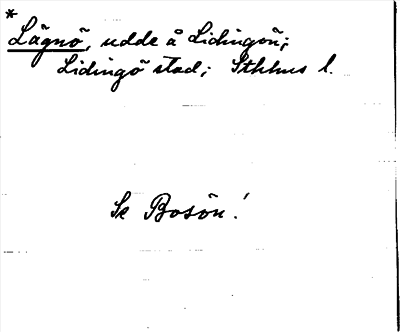 *
Lägnö, udde å Lidingön;
Lidingö stad; Sthlms l.
Se Bosön!